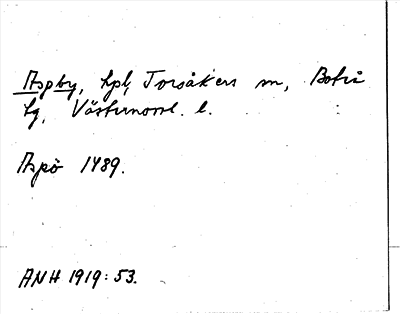 Aspby, hpl, Torsåkers sn, Boteå
tg, Västernorrl. l.
Aspö 1489.
ANH 1919: 53.